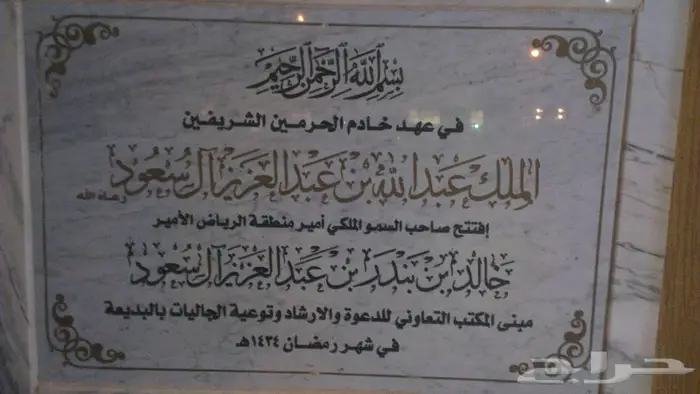 بسم الله الرحمن الرحيم
في عهد خادم الحرمين الشريفين
الملك عبدالله بن عبدالعزيز آل سعود
رعاه الله
إفتتح صاحب السمو الملكي أمير منطقة الرياض الأمير
خالد بن بندر بن عبدالعزيز آل سعود
مبنى المكتب التعاوني للدعوة والارشاد وتوعية الجاليات بالبديعة
في شهر رمضان ١٤٣٤هـ
حراج